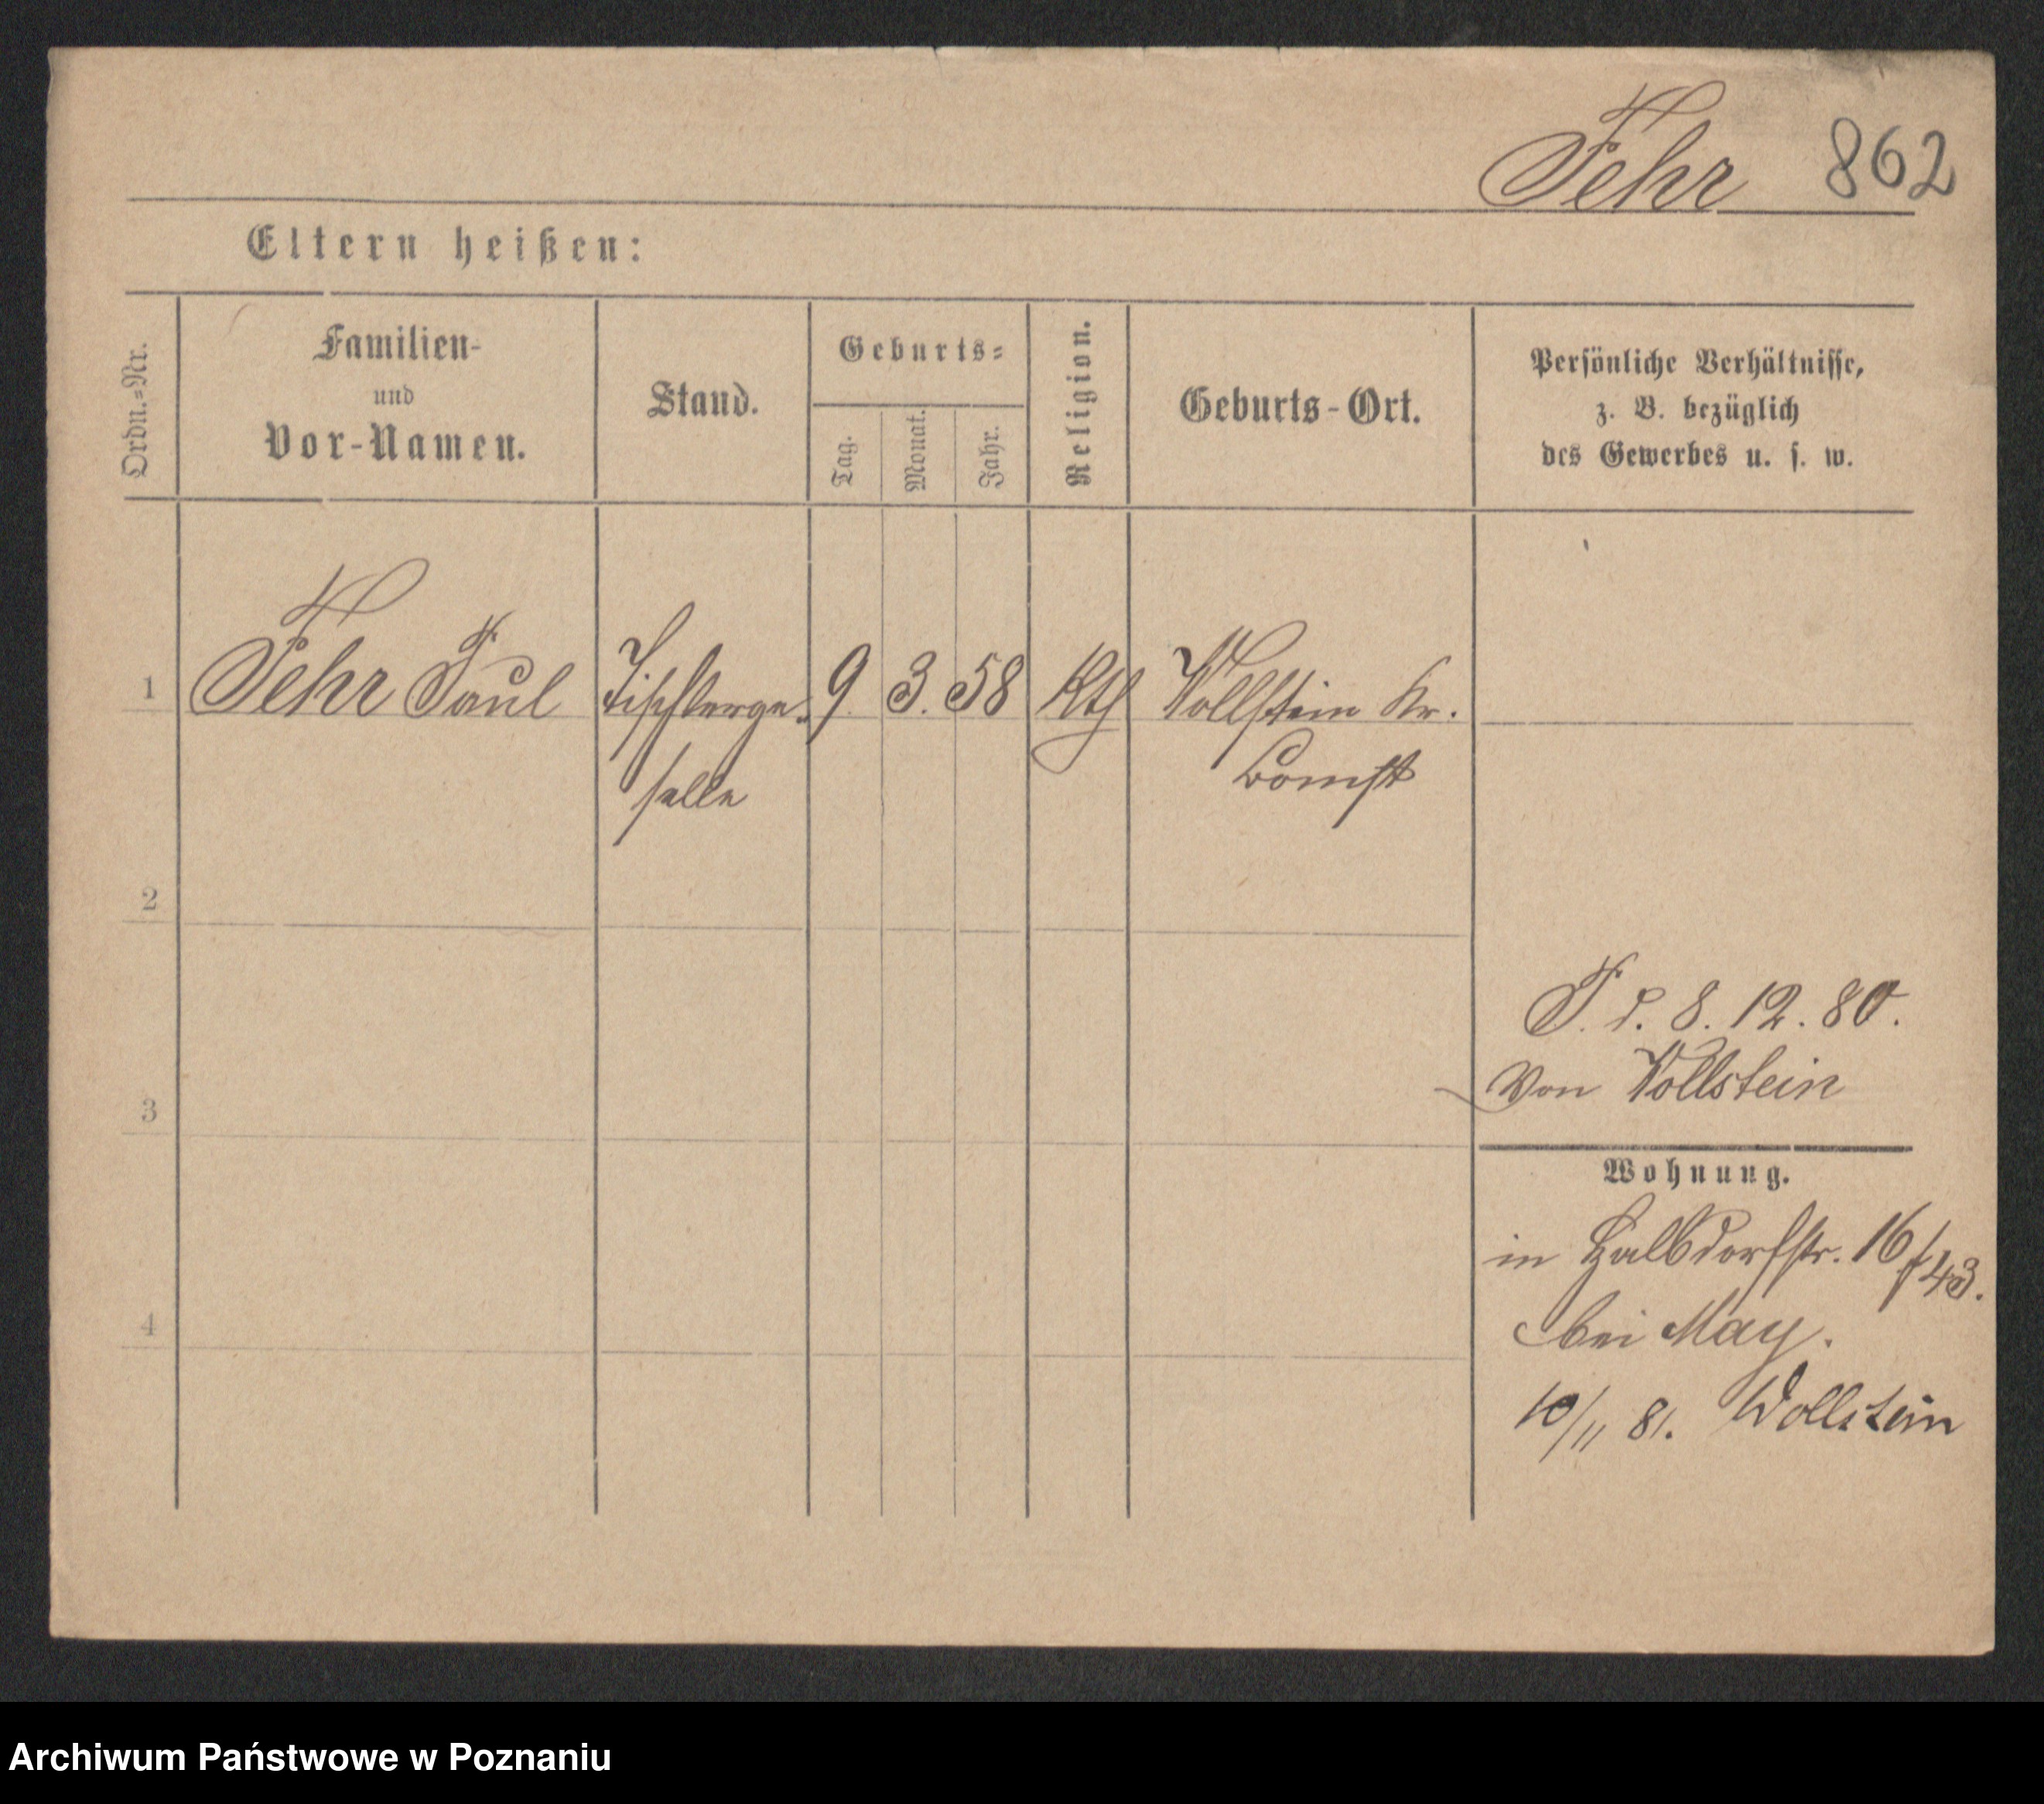 Fehr 862
Eltern heißen:
Ordn.-Nr.
Familien-
und
Vor-Namen.
Stand.
Geburts-
Tag.
Monat.
Jahr.
Religion.
Geburts-Ort.
Persönliche Verhältnisse,
z. B. bezüglich
des Gewerbes u. s. w.
1 Fehr Paul Tischlerge- 9. 3. 58 Kth Wollstein Kr.
selle Bomst
2
P. d. 8. 12. 80.
von Wollstein
3
Wohnung.
in Halbdorfstr. 16/43.
bei May.
4
10/11 81. Wollstein
Archiwum Państwowe w Poznaniu